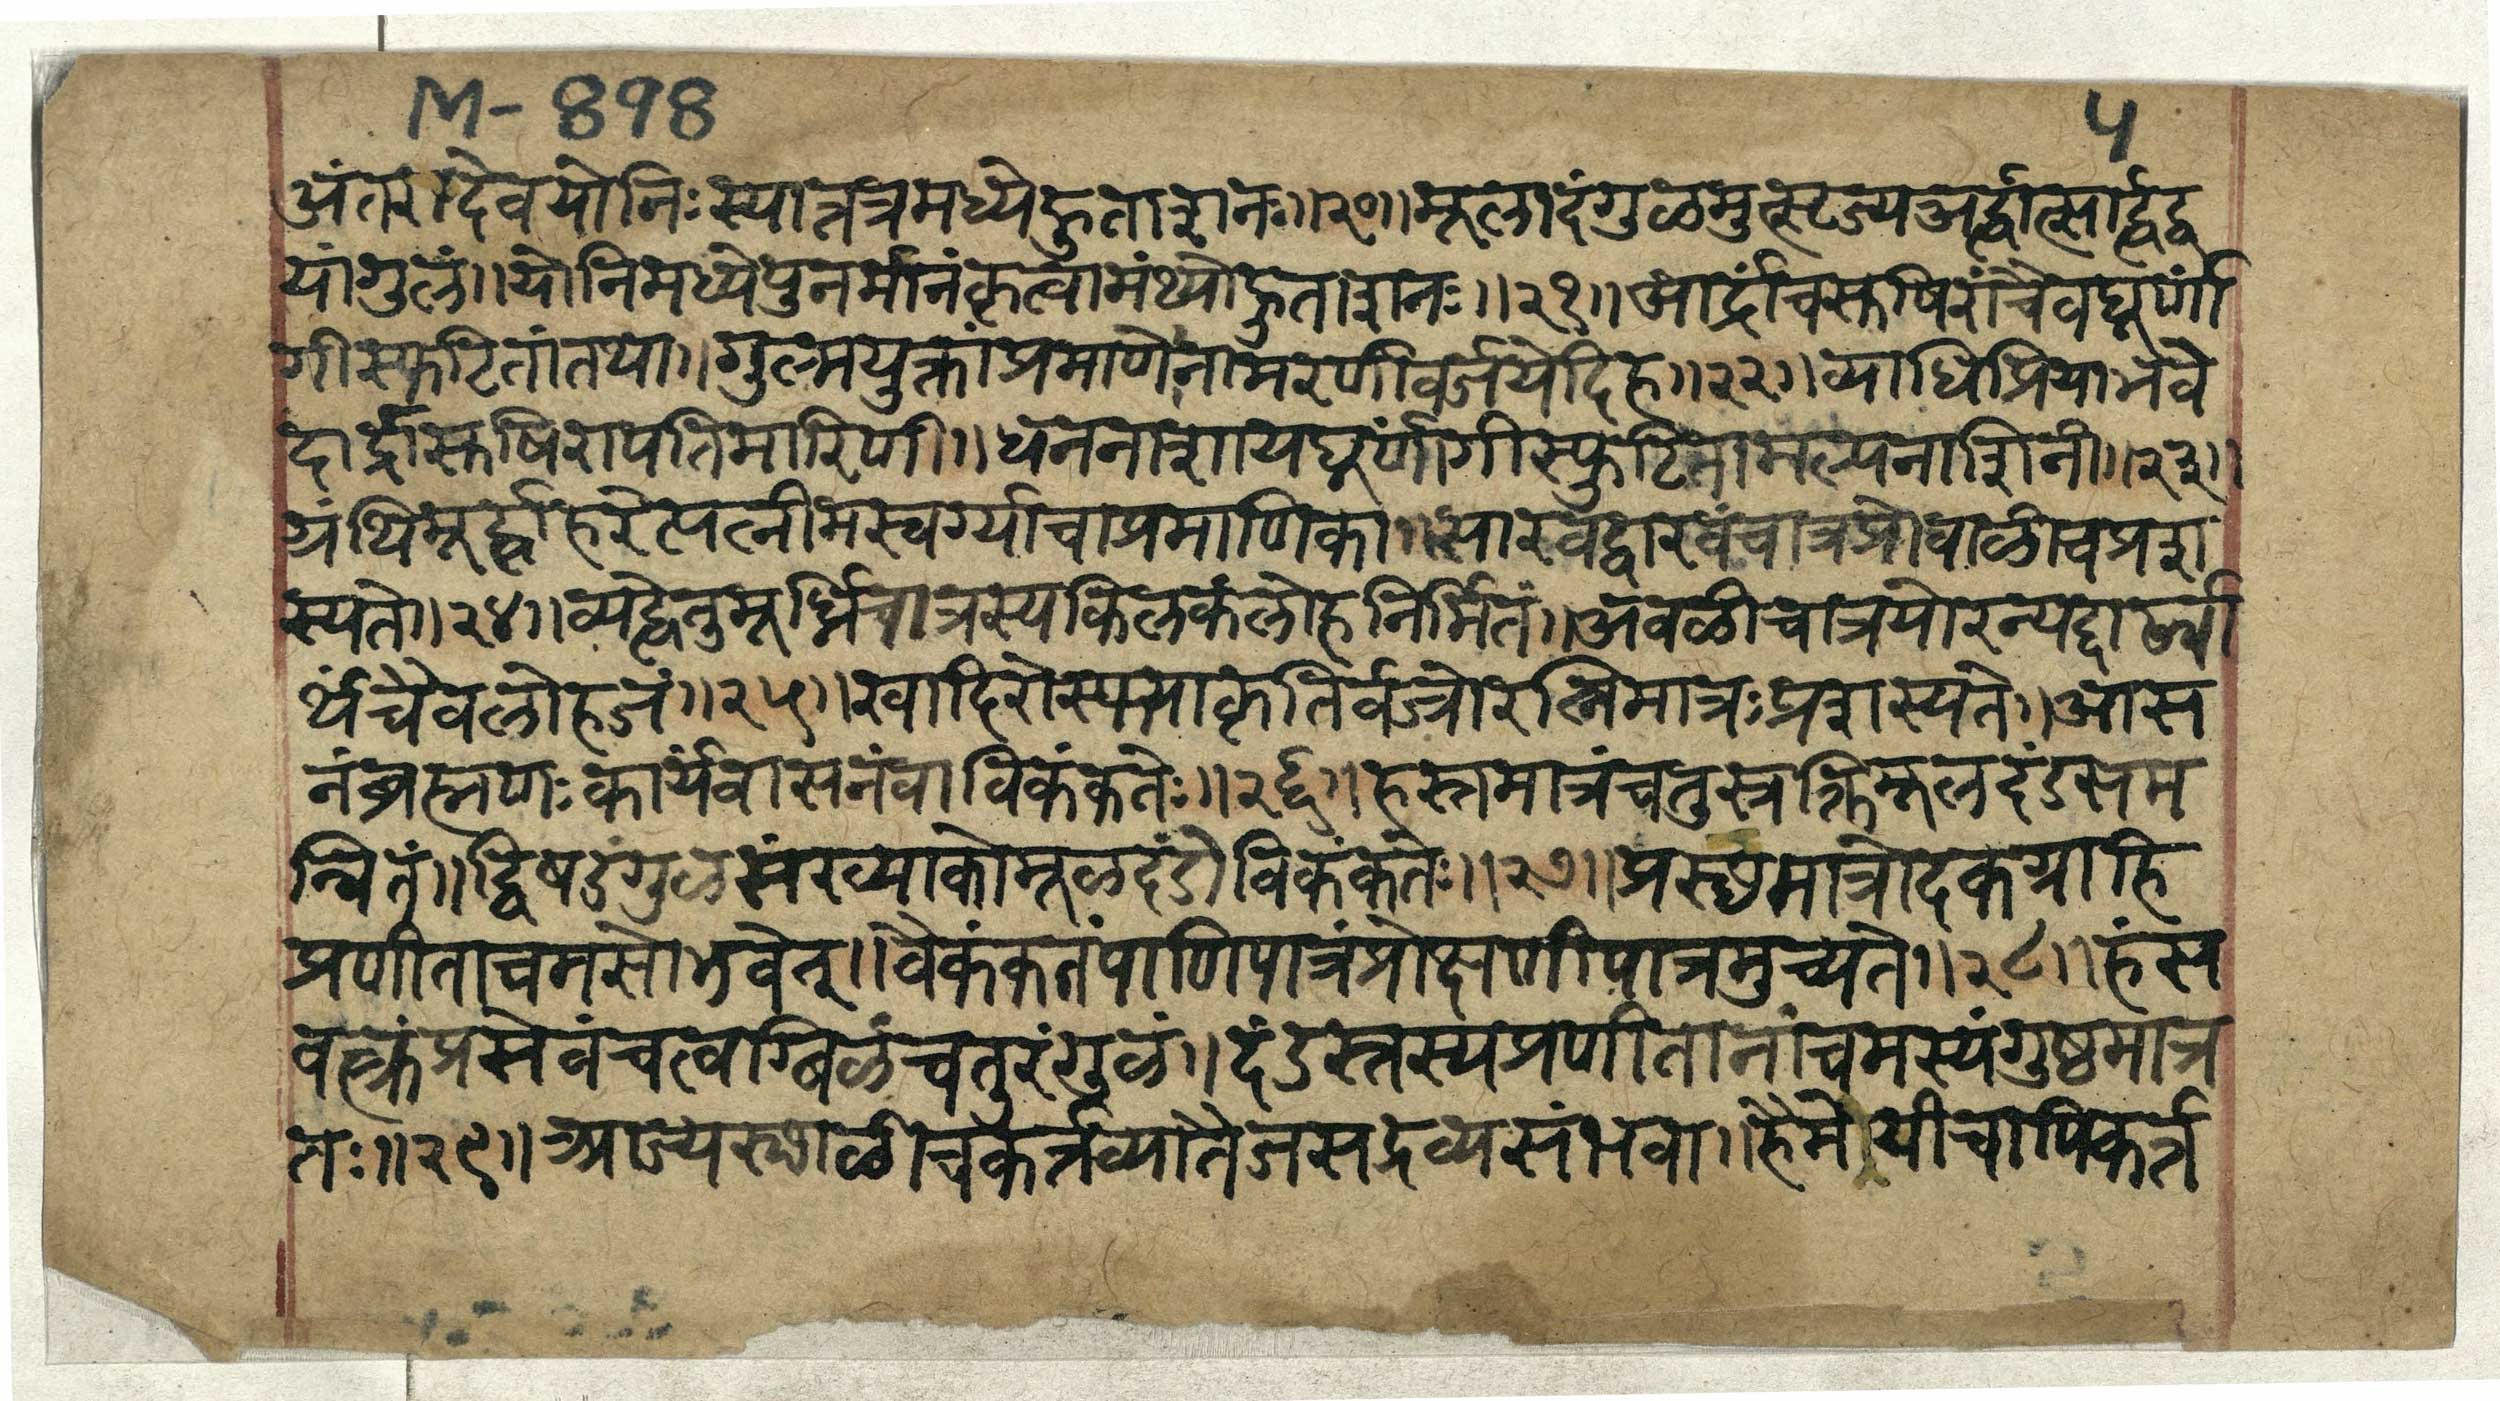 M-898
५
अंतरादेवयोनिःस्यात्तत्रमध्येहुताशनः॥२०॥मूलादंगुळमुत्सृज्यअर्द्धात्सार्द्धद्व
यांगुलं॥योनिमध्येपुनर्मानंकृत्वामंथ्योहुताशनः॥२१॥आर्द्रांचसुषिरांचैवघूर्णां
गीस्फुटितांतथा॥गुल्मयुक्तांप्रमाणैनामरणींवर्जयेदिह॥२२॥व्याधिप्रियाभवे
दार्द्रासुषिरापतिमारिणी॥धननाशायघूर्णांगीस्फुटितामत्पनाशिनी॥२३॥
ग्रंथिमूर्द्धाहरेत्पत्नीमस्वर्ग्याचाप्रमाणिका॥सारवद्दारवंचात्रप्रोवाळीचप्रश
स्यते॥२४॥व्यद्धेतुमूर्ध्निचात्रस्यकिलकंलोहनिर्मितं॥अवळीचात्रयोरन्यद्दार्ढ्या
र्थंचैवलोहजं॥२५॥खादिरोस्प्याकृतिर्वज्रोरत्निमात्रःप्रशस्यते॥आस
नंब्रह्मणःकार्यंवासनंवाविकंकतैः॥२६॥हस्तमात्रंचतुस्त्रक्तिमूलदंडसम
न्वितं॥द्विषडंगुळसंख्याकोमूळदंडोविकंकतैः॥२७॥प्रस्थमात्रोदकग्राहि
प्रणीताचमसोभवेत्॥वैकंकतंपाणिपात्रंप्रोक्षणीपात्रमुच्यते॥२८॥हंस
वक्त्रंप्रसेवंचत्वग्बिळंचतुरंगुळं॥दंडस्तस्यप्रणीतानांचमस्यंगुष्ठमात्र
तः॥२९॥आज्यस्थाळीचकर्त्तव्यातैजसद्रव्यसंभवा॥हैमीयीचापिकर्त्त